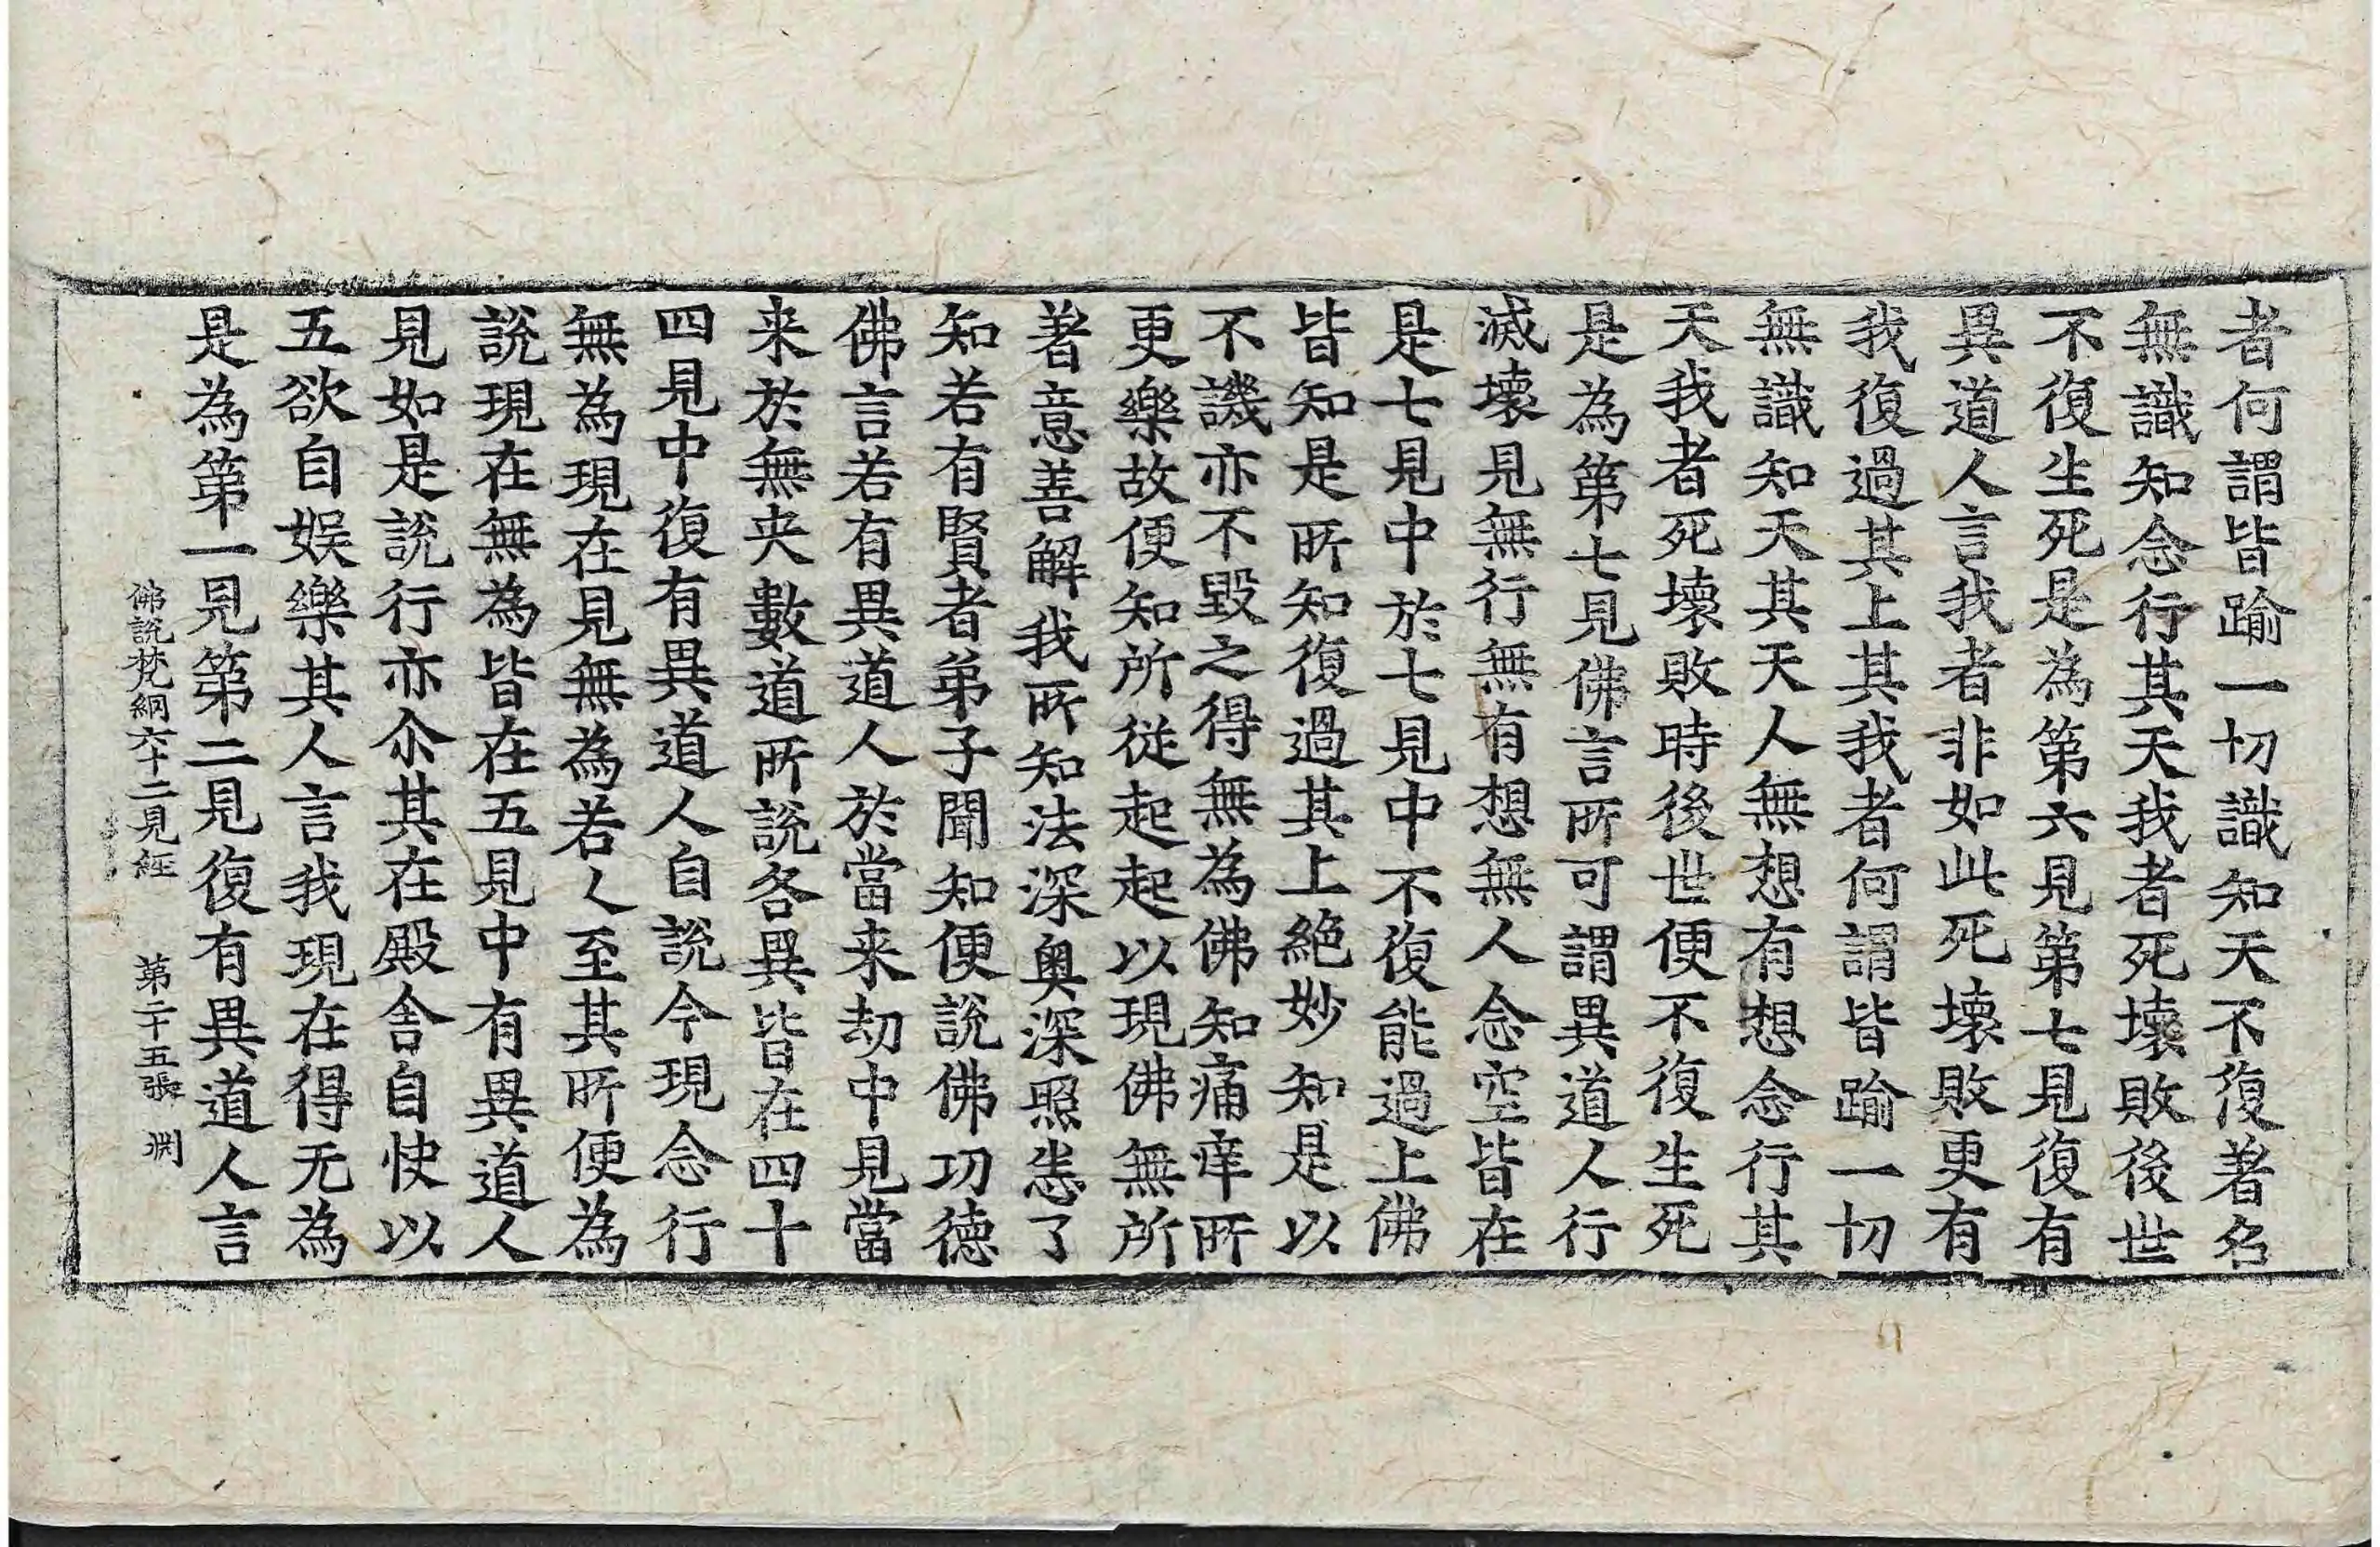 者何謂皆踰一切識知天不復著名
無識知念行其天我者死壞敗後世
不復生死是為第六見第七見復有
異道人言我者非如此死壞敗更有
我復過其上其我者何謂皆踰一切
無識知天其天人無想有想念行其
天我者死壞敗時後世便不復生死
是為第七見佛言所可謂異道人行
滅壞見無行無有想無人念空皆在
是七見中於七見中不復能過上佛
皆知是所知復過其上絕妙知是以
不譏亦不毀之得無為佛知痛痒所
更樂故便知所從起起以現佛無所
著意善解我所知法深奧深照恚了
知若有賢者弟子聞知便說佛功德
佛言若有異道人於當来劫中見當
来於無央數道所說各異皆在四十
四見中復有異道人自說今現念行
無為現在見無為若人至其所便為
說現在無為皆在五見中有異道人
見如是說行亦尒其在殿舍自快以
五欲自娛樂其人言我現在得无為
是為第一見第二見復有異道人言
佛說梵網六十二見經 第二十五張 渕